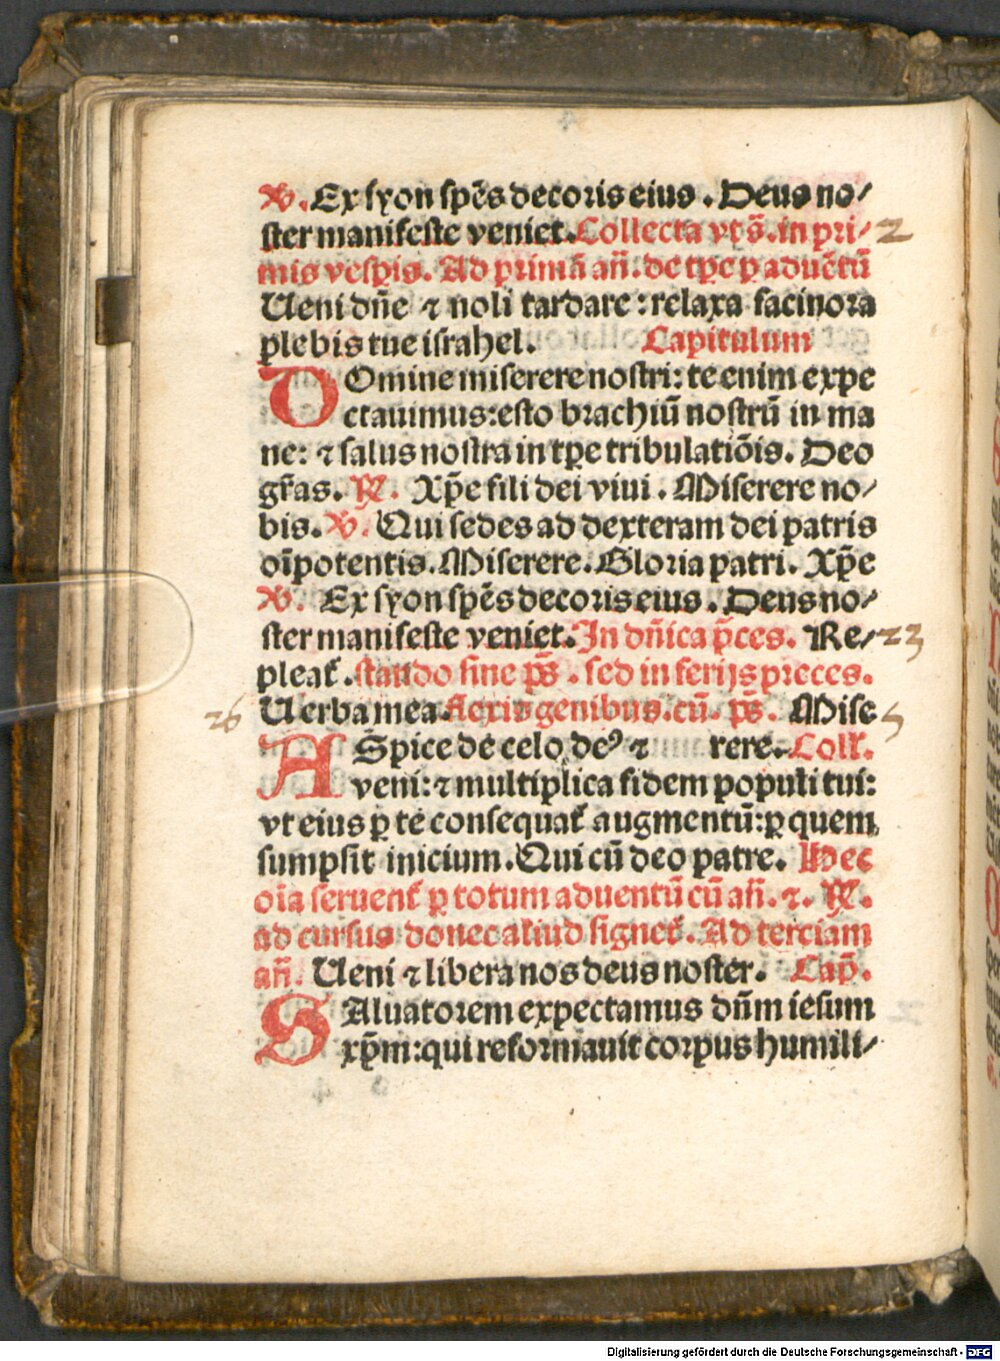 ℣. Ex syon spēs decoris eius . Deus no/
ster manifeste veniet. Collecta vt s̄. in pri/ 2
mis vesp̱is. Ad primā añ. de tp̱e p aduētū
Ueni dñe ⁊ noli tardare : relaxa facinora
plebis tue israhel. Capitulum
DOmine miserere nostri: te enim expe
ctauimus: esto brachiū nostrū in ma
ne: ⁊ salus nostra in tp̱e tribulatiōis. Deo
gr̄as. ℟. Xp̄e fili dei viui . Miserere no/
bis. ℣. Qui sedes ad dexteram dei patris
oīpotentis. Miserere. Gloria patri. Xp̄e
℣. Ex syon spēs decoris eius . Deus no/
ster manifeste veniet. In dñica p̄ces. Re/ 23
pleat᷑ . stando sine ps̄ . sed in ferijs preces.
26 Uerba mea. flexis genibus. cū. ps̄. Mise 5
ASpice de celo deꝰ ⁊ rere. Coll᷑.
veni: ⁊ multiplica fidem populi tui:
vt eius p te consequat᷑ augmentū: p quem
sumpsit inicium. Qui cū deo patre. Hec
oīa seruent᷑ p totum aduentū cū añ. ⁊. ℟.
ad cursus donec aliud signet᷑. Ad terciam
añ. Ueni ⁊ libera nos deus noster. Cap̄.
SAluatorem expectamus dñm iesum
xp̄m: qui reformauit corpus humili/
Digitalisierung gefördert durch die Deutsche Forschungsgemeinschaft - DFG